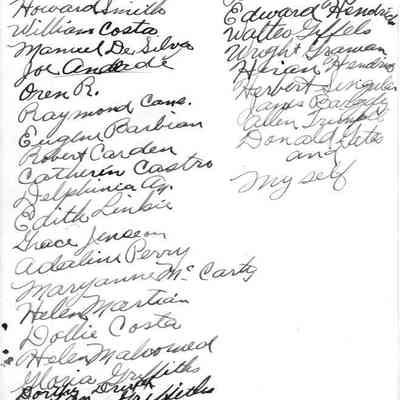 Howard Smith
William Costa
Manuel De Silva
Joe Andrade
Oren R.
Raymond Cane.
Eugene Barbian
Robert Carden
Catherin Castro
Delphinia Ay.
Edith Linkie
Grace Jensen
Adeline Perry
Maryanne McCarty
Helen Martian
Dollie Costa
Helen Mahoomed
Gloria Griffiths
Dorthy
Edward Hendrick
Walter Giffels
Wright Graman
Hiran Hendrick
Herbert Singular
James
Allen
Donald
and
My self